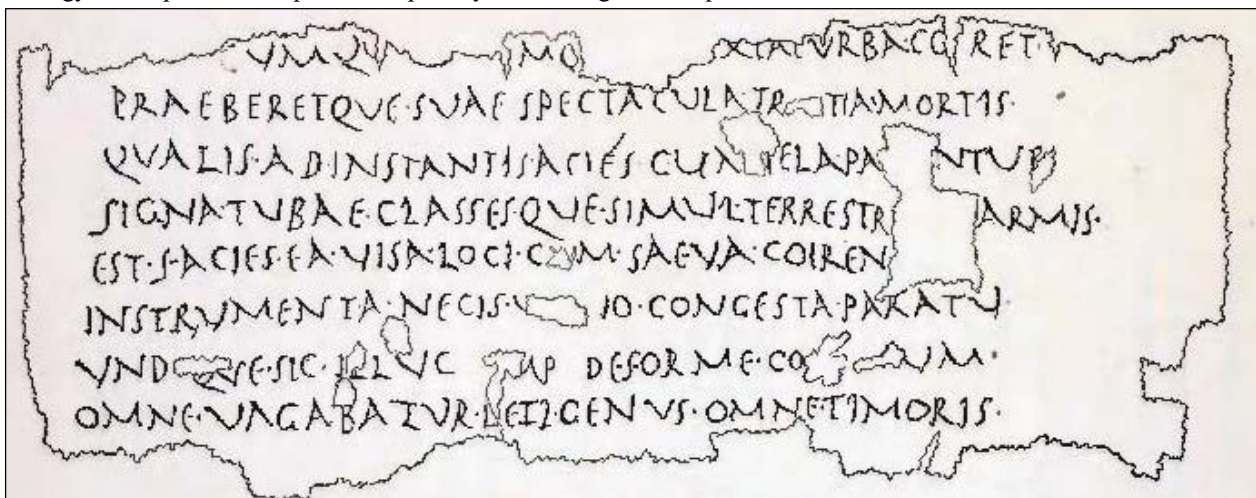 VMQV MQ XIATVRBACO RET·
PRAEBERETQVE·SVAE SPECTACVLA·TR TIA·MORTIS·
QVALIS·AD·INSTANTIS·ACIES CVM TELA·PA NTVR
SIGNA·TVBAE·CLASSESQVE·SIMVL·TERRESTR ARMIS·
EST·F·ACIES·EA·VISA·LOCI·CVM·SAEVA·COIREN
INSTRVMENTA·NECIS·V IO·CONGESTA·PARATV
VND QVE·SIC·ILLVC MP DEFORME·CO VM·
OMNE·VAGABATVR·LETI·GENVS·OMNE·TIMORIS·